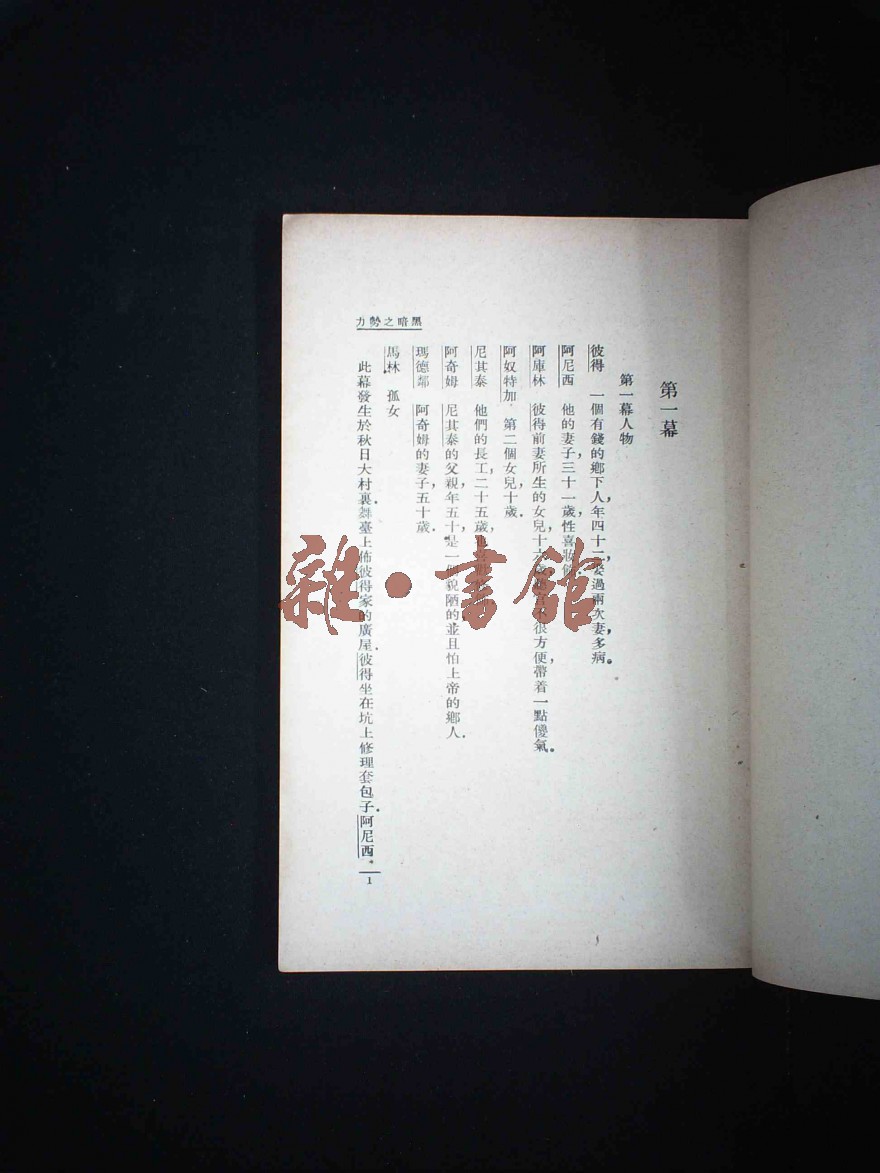 黑暗之勢力
第一幕
第一幕人物
彼得 一個有錢的鄉下人,年四十二,娶過兩次妻,多病。
阿尼西 他的妻子,三十一歲,性喜妝
阿庫林 彼得前妻所生的女兒,十六 很方便,帶着一點傻氣。
阿奴特加 第二個女兒十歲.
尼其泰 他們的長工,二十五歲,
阿奇姆 尼其泰的父親,年五十,是一 貌陋的並且怕上帝的鄉人.
瑪德鄰 阿奇姆的妻子五十歲.
馬林 孤女
此幕發生於秋日大村裏.舞臺上佈彼得家的廣屋.彼得坐在坑上修理套包子.阿尼西.
1
雜·書館